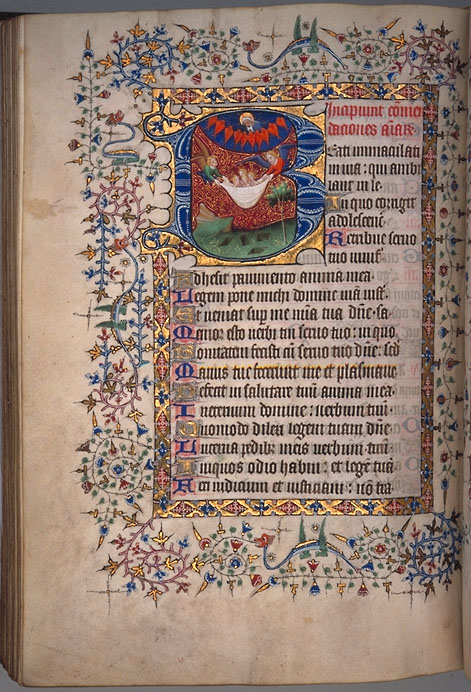 Incipiunt come(n)
daciones aiar(um)
Beati immaculati
in uia : qui ambu
lant in le
In quo corrigit
adolescens
Retribue seruo
tuo uiuif
Adhesit pauimento anima mea
Legem pone michi domine uiā iusti
Et ueniat sup me mīa tua dn̄e · sa
Memor esto uerbi tui seruo tuo : in quo
Bonitatem fecisti cū seruo tuo dn̄e : scd
Manus tue fecerunt me et plasmaue
Defecit in salutare tuū anima mea
In eternum domine : uerbum tuū
Quomodo dilexi legem tuam dn̄e
Lucerna pedib meis uerbum tuū
Iniquos odio habui : et legē tuā
feci iudicium et iusticiam : nō tra